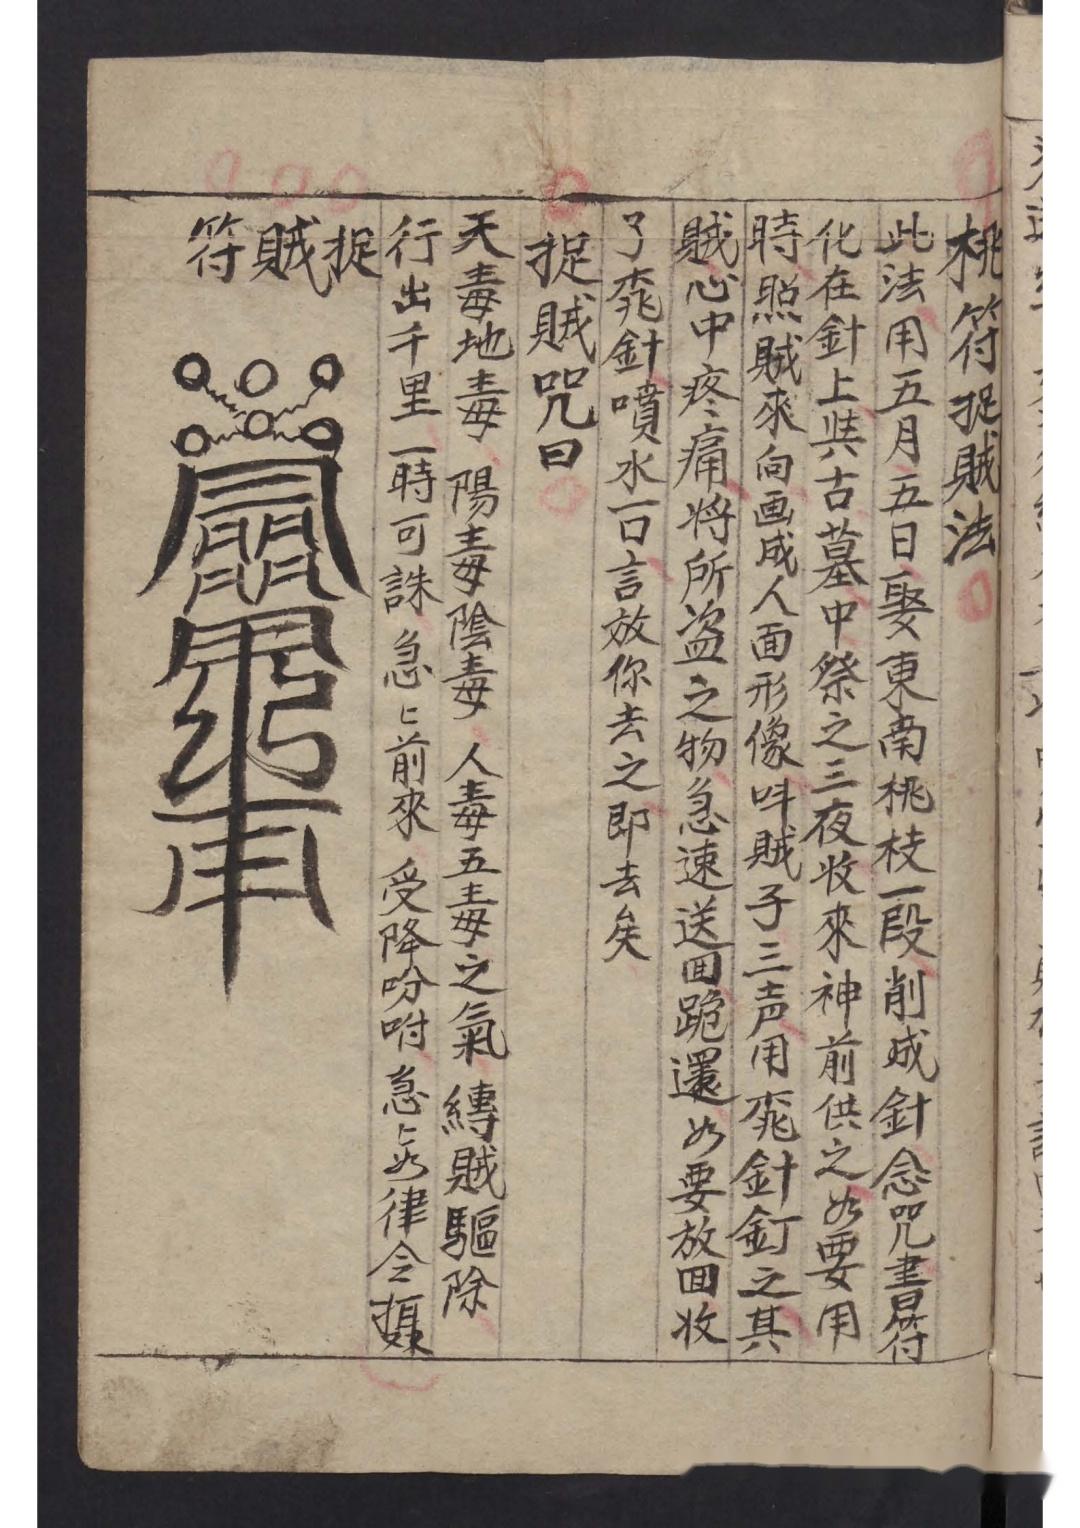 桃符捉賊法
此法用五月五日娶東南桃枝一段削成針念咒書符
化在針上裝古墓中祭之三夜收來神前供之如要用
時照賊來向画成人面形像呌賊子三声用桃針釘之其
賊心中疼痛将所盗之物急速送囬跪還如要放囬收
了桃針噴水一口言放你去之即去矣
捉賊咒曰
天毒地毒陽毒陰毒人毒五毒之氣縛賊驅除
行出千里一時可誅急〻前來受降吩咐急〻如律令攝
捉賊符